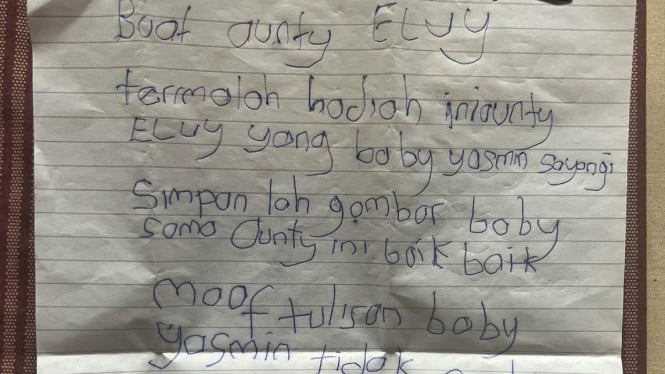 Buat aunty ELVY
terimalah hadiah ini aunty
ELVY yang baby yasmin sayangi
Simpan lah gambar baby
sama aunty ini baik baik
Maaf tulisan baby
yasmin tidak